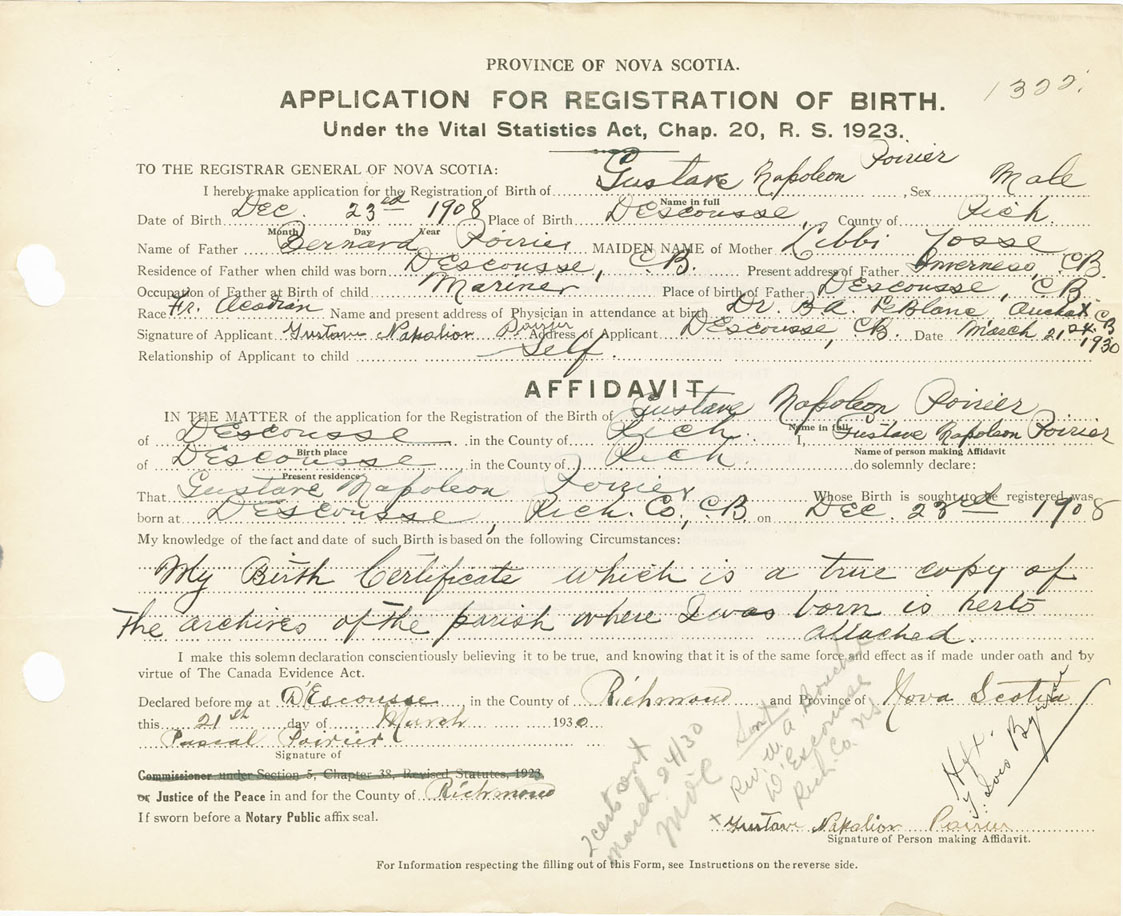 PROVINCE OF NOVA SCOTIA.
1322.
APPLICATION FOR REGISTRATION OF BIRTH.
Under the Vital Statistics Act, Chap. 20, R. S. 1923.
TO THE REGISTRAR GENERAL OF NOVA SCOTIA:
I hereby make application for the Registration of Birth of Gustave Napoleon Poirier, Sex Male
Name in full
Date of Birth Dec. 23rd 1908 Place of Birth DEscousse, County of Rich.
Month Day Year
Name of Father Bernard Poirier MAIDEN NAME of Mother Libbi Josse
Residence of Father when child was born DEscousse, C.B. Present address of Father Inverness, C.B.
Occupation of Father at Birth of child Mariner Place of birth of Father DEscousse, C.B.
Race Fr. Acadian Name and present address of Physician in attendance at birth Dr. B.A. LeBlanc C.B.
Signature of Applicant Gustave Napalion Poirier Address of Applicant DEscousse, C.B. Date March 21st 1930
Relationship of Applicant to child Self.
AFFIDAVIT
IN THE MATTER of the application for the Registration of the Birth of Gustave Napoleon Poirier
Name in full
of DEscousse in the County of Rich. I, Gustave Napoleon Poirier
Birth place Name of person making Affidavit
of DEscousse in the County of Rich. do solemnly declare:
Present residence
That Gustave Napoleon Poirier Whose Birth is sought to be registered was
born at DEscousse, Rich. Co., C.B. on Dec. 23rd 1908
My knowledge of the fact and date of such Birth is based on the following Circumstances:
My Birth Certificate which is a true copy of
the archives of the parish where I was born is herto
attached.
I make this solemn declaration conscientiously believing it to be true, and knowing that it is of the same force and effect as if made under oath and by
virtue of The Canada Evidence Act.
Declared before me at D'Escousse in the County of Richmond and Province of Nova Scotia
this 21th day of March 1930
Pascal Poirier
Signature of
Commissioner under Section 5, Chapter 38, Revised Statutes, 1923
or Justice of the Peace in and for the County of Richmond
If sworn before a Notary Public affix seal.
2 certs sent
March 24/30
Sent
Rev. W. A.
D'Escousse
Rich. Co. N.S.
Hfx.
x Gustave Napalion Poirier
Signature of Person making Affidavit.
For Information respecting the filling out of this Form, see Instructions on the reverse side.